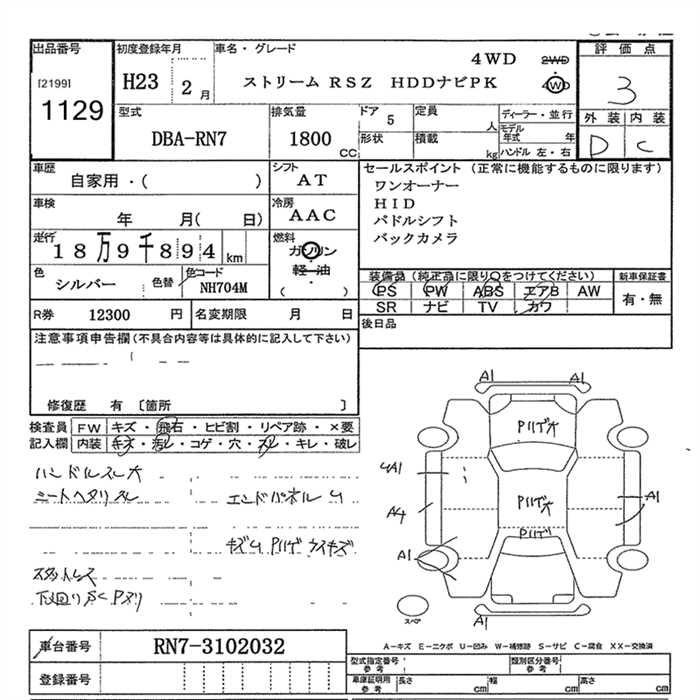 出品番号
[2199]
1129
初度登録年月
H23 2月
車名・グレード
4WD 2WD
ストリーム RSZ HDDナビPK 4WD
評価点
3
外装 内装
D C
型式
DBA-RN7
排気量
1800 CC
ドア 5
形状
定員 人
積載 kg
ディーラー・並行
モデル年式 年
ハンドル 左・右
車歴
自家用・( )
シフト
AT
車検
年 月( 日)
冷房
AAC
走行
18万9千894 km
燃料
ガソリン
軽・油
( )
色
シルバー
色替
色コード
NH704M
R券 12300 円
名変期限 月 日
セールスポイント (正常に機能するものに限ります)
ワンオーナー
HID
パドルシフト
バックカメラ
装備品 (純正品に限り○をつけてください)
PS PW ABS エアB AW
SR ナビ TV カワ
新車保証書
有・無
後日品
注意事項申告欄 (不具合内容等は具体的に記入して下さい)
修復歴 有 〔箇所 〕
検査員記入欄
FW キズ・飛石・ヒビ割・リペア跡・×要
内装 キズ・汚レ・コゲ・穴・スレ・キレ・破レ
ハンドルスレ大
シートヘタリスレ
エンドパネル U
キズ U Pハゲ ウスキズ
スタットレス
下廻りS C Pヌリ
A1 A1
Pハゲ大
4A1
A4
Pハゲ大
A1
Pハゲ
A1
A1
スペア
A-キズ E-エクボ U-凹み W-補修跡 S-サビ C-腐食 XX-交換済
車台番号
RN7-3102032
登録番号
型式指定番号 参考
類別区分番号 参考
車庫証明用 参考
長さ cm
幅 cm
高さ cm